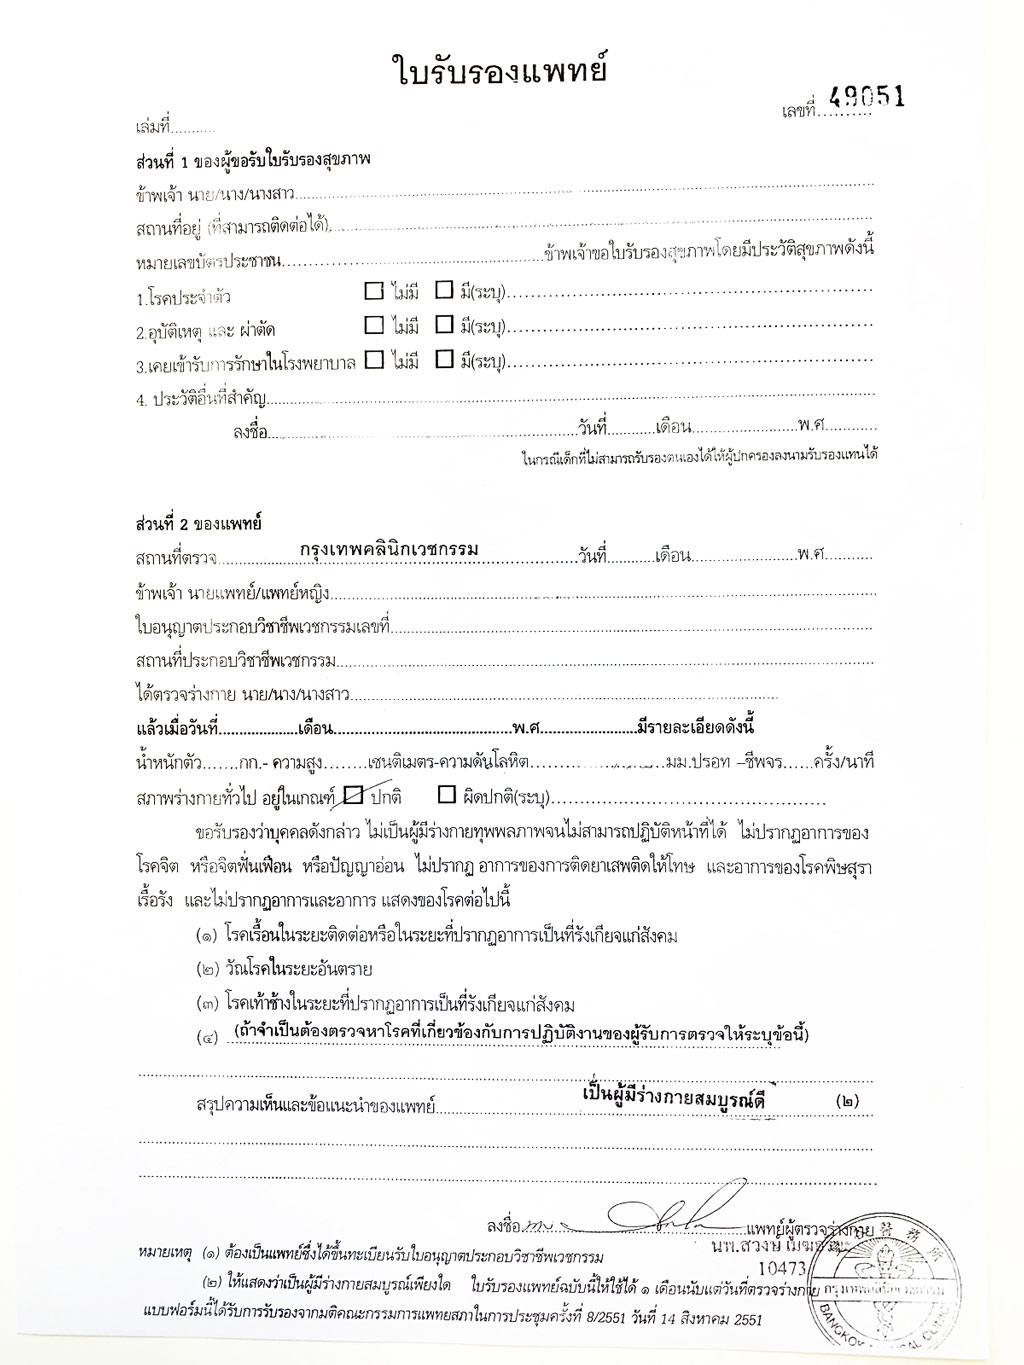 ใบรับรองแพทย์
เลขที่..........49051
เล่มที่..........
ส่วนที่ 1 ของผู้ขอรับใบรับรองสุขภาพ
ข้าพเจ้า นาย/นาง/นางสาว..........
สถานที่อยู่ (ที่สามารถติดต่อได้)..........
หมายเลขบัตรประชาชน..........ข้าพเจ้าขอใบรับรองสุขภาพโดยมีประวัติสุขภาพดังนี้
1.โรคประจำตัว ☐ ไม่มี ☐ มี(ระบุ)..........
2.อุบัติเหตุ และ ผ่าตัด ☐ ไม่มี ☐ มี(ระบุ)..........
3.เคยเข้ารับการรักษาในโรงพยาบาล ☐ ไม่มี ☐ มี(ระบุ)..........
4. ประวัติอื่นที่สำคัญ..........
ลงชื่อ..........วันที่..........เดือน..........พ.ศ..........
ในกรณีเด็กที่ไม่สามารถรับรองตนเองได้ให้ผู้ปกครองลงนามรับรองแทนได้
ส่วนที่ 2 ของแพทย์
สถานที่ตรวจ..........กรุงเทพคลินิกเวชกรรม..........วันที่..........เดือน..........พ.ศ..........
ข้าพเจ้า นายแพทย์/แพทย์หญิง..........
ใบอนุญาตประกอบวิชาชีพเวชกรรมเลขที่..........
สถานที่ประกอบวิชาชีพเวชกรรม..........
ได้ตรวจร่างกาย นาย/นาง/นางสาว..........
แล้วเมื่อวันที่..........เดือน..........พ.ศ..........มีรายละเอียดดังนี้
น้ำหนักตัว.......กก.- ความสูง........เซนติเมตร-ความดันโลหิต..........มม.ปรอท –ชีพจร......ครั้ง/นาที
สภาพร่างกายทั่วไป อยู่ในเกณฑ์ ☑ ปกติ ☐ ผิดปกติ(ระบุ)..........
ขอรับรองว่าบุคคลดังกล่าว ไม่เป็นผู้มีร่างกายทุพพลภาพจนไม่สามารถปฏิบัติหน้าที่ได้ ไม่ปรากฏอาการของ
โรคจิต หรือจิตฟั่นเฟือน หรือปัญญาอ่อน ไม่ปรากฏ อาการของการติดยาเสพติดให้โทษ และอาการของโรคพิษสุรา
เรื้อรัง และไม่ปรากฏอาการและอาการ แสดงของโรคต่อไปนี้
(๑) โรคเรื้อนในระยะติดต่อหรือในระยะที่ปรากฏอาการเป็นที่รังเกียจแก่สังคม
(๒) วัณโรคในระยะอันตราย
(๓) โรคเท้าช้างในระยะที่ปรากฏอาการเป็นที่รังเกียจแก่สังคม
(๔) (ถ้าจำเป็นต้องตรวจหาโรคที่เกี่ยวข้องกับการปฏิบัติงานของผู้รับการตรวจให้ระบุข้อนี้)
สรุปความเห็นและข้อแนะนำของแพทย์..........เป็นผู้มีร่างกายสมบูรณ์ดี (๒)
ลงชื่อ..........แพทย์ผู้ตรวจร่างกาย
นพ.สวงษ์
10473
หมายเหตุ (๑) ต้องเป็นแพทย์ซึ่งได้ขึ้นทะเบียนรับใบอนุญาตประกอบวิชาชีพเวชกรรม
(๒) ให้แสดงว่าเป็นผู้มีร่างกายสมบูรณ์เพียงใด ใบรับรองแพทย์ฉบับนี้ให้ใช้ได้ ๑ เดือนนับแต่วันที่ตรวจร่างกาย
แบบฟอร์มนี้ได้รับการรับรองจากมติคณะกรรมการแพทยสภาในการประชุมครั้งที่ 8/2551 วันที่ 14 สิงหาคม 2551
醫務所
กรุงเทพคลินิกเวชกรรม